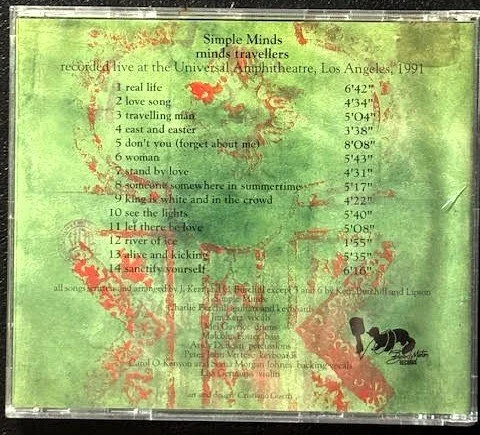 Simple Minds
minds travellers
recorded live at the Universal Amphitheatre, Los Angeles, 1991
1 real life 6'42"
2 love song 4'34"
3 travelling man 5'04"
4 east and easter 3'38"
5 don't you (forget about me) 8'08"
6 woman 5'43"
7 stand by love 4'31"
8 someone somewhere in summertime 5'17"
9 king is white and in the crowd 4'22"
10 see the lights 5'40"
11 let there be love 5'08"
12 river of ice 1'55"
13 alive and kicking 5'35"
14 sanctify yourself 6'16"
all songs written and arranged by J. Kerr C. Burchill except 3 and 6 by Kerr, Burchill and Lipson
Simple Minds
Charlie Burchill guitar and keyboards
Jim Kerr vocals
Mel Gaynor drums
bass
percussions
keyboards
Carol and Sonia Morgan Johnes backing vocals
violin
art and design